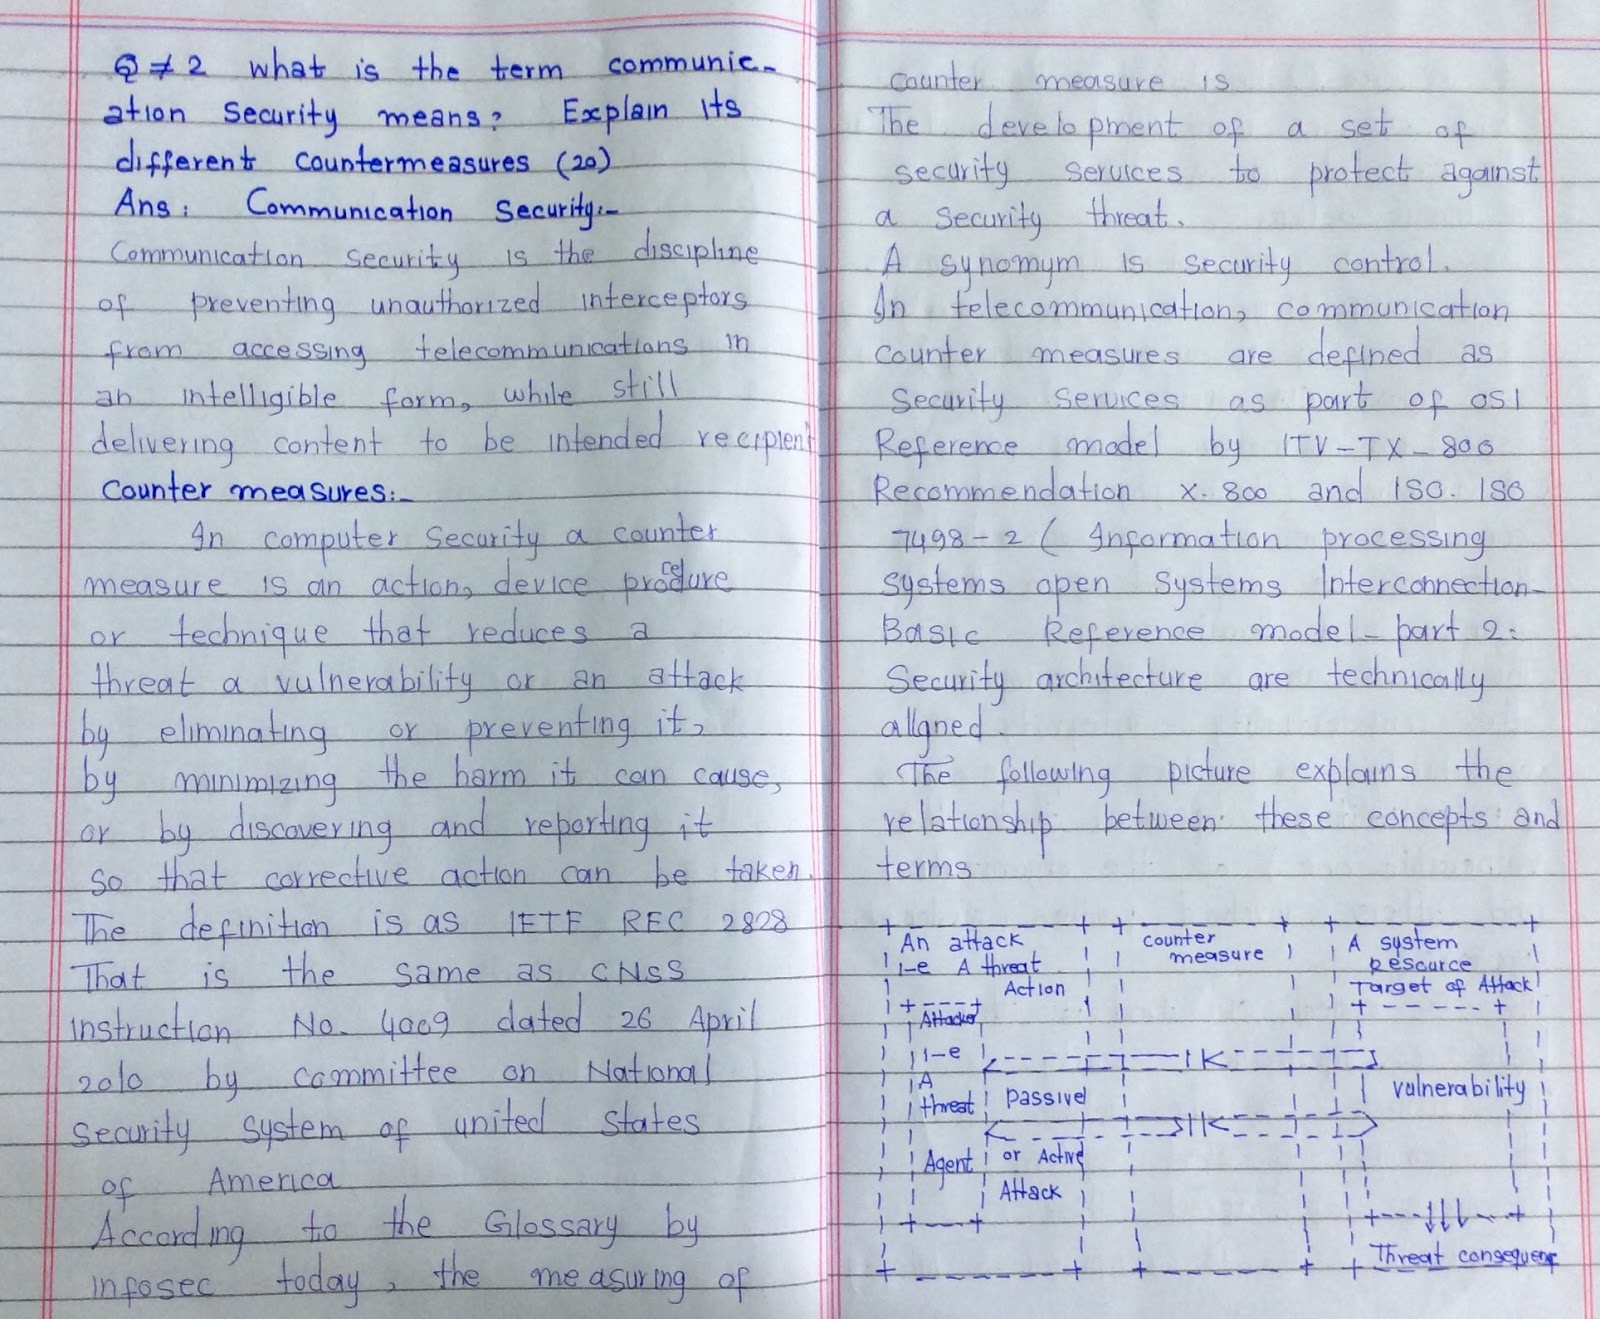 Q # 2 what is the term communic-
ation Security means? Explain Its
different countermeasures (20)
Ans: Communication Security:-
Communication Security is the discipline
of preventing unauthorized interceptors
from accessing telecommunications in
an intelligible form, while still
delivering content to be intended recipient
Counter measures:-
In computer Security a counter
measure is an action, device procedure
or technique that reduces a
threat a vulnerability or an attack
by eliminating or preventing it,
by minimizing the harm it can cause,
or by discovering and reporting it
so that corrective action can be taken.
The definition is as IETF REC 2828
That is the same as CNSS
instruction No. 4009 dated 26 April
2010 by committee on National
Security System of united States
of America
According to the Glossary by
infosec today, the measuring of
counter measure is
The development of a set of
security services to protect against
a security threat.
A synomym is security control.
In telecommunication, communication
counter measures are defined as
Security Services as part of OSI
Reference model by ITV-TX-800
Recommendation X.800 and ISO. ISO
7498-2 ( Information processing
systems open Systems Interconnection-
Basic Reference model- part 2:
Security architecture are technically
aligned.
The following picture explains the
relationship between these concepts and
terms
An attack
i-e A threat
Action
Attacker
i-e
A
threat
Agent
passive
or Active
Attack
counter
measure
A system
Resource
Target of Attack
vulnerability
Threat consequenc